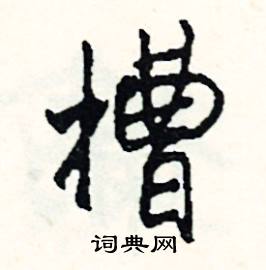 槽
词典网